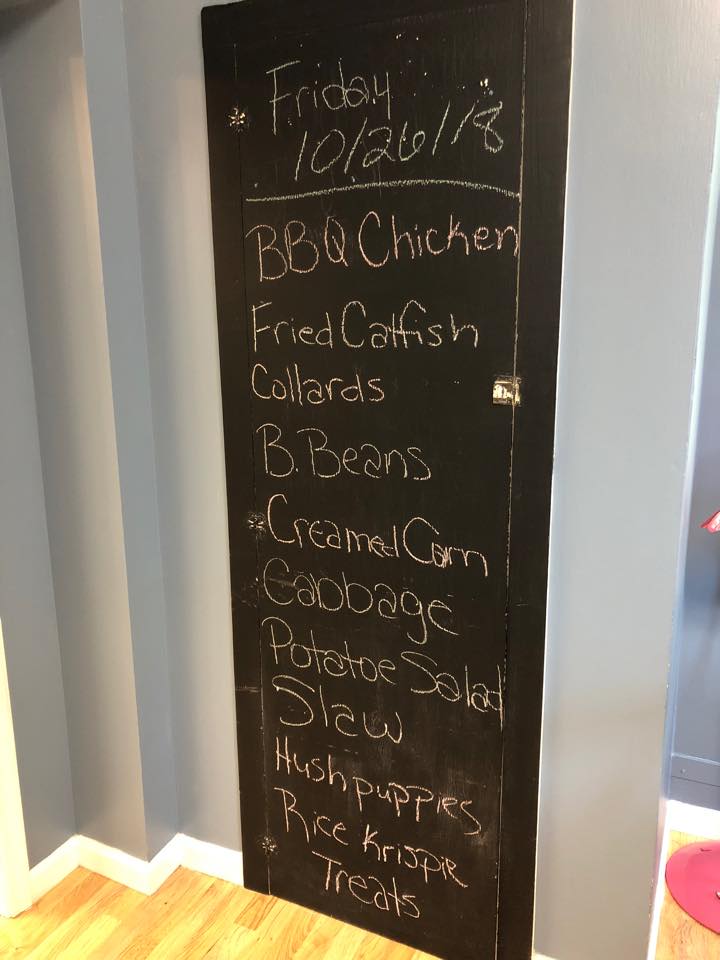 Friday
10/26/18
BBQ Chicken
Fried Catfish
Collards
B. Beans
Creamed Corn
Cabbage
Potatoe Salad
Slaw
Hushpuppies
Rice Krispie
Treats